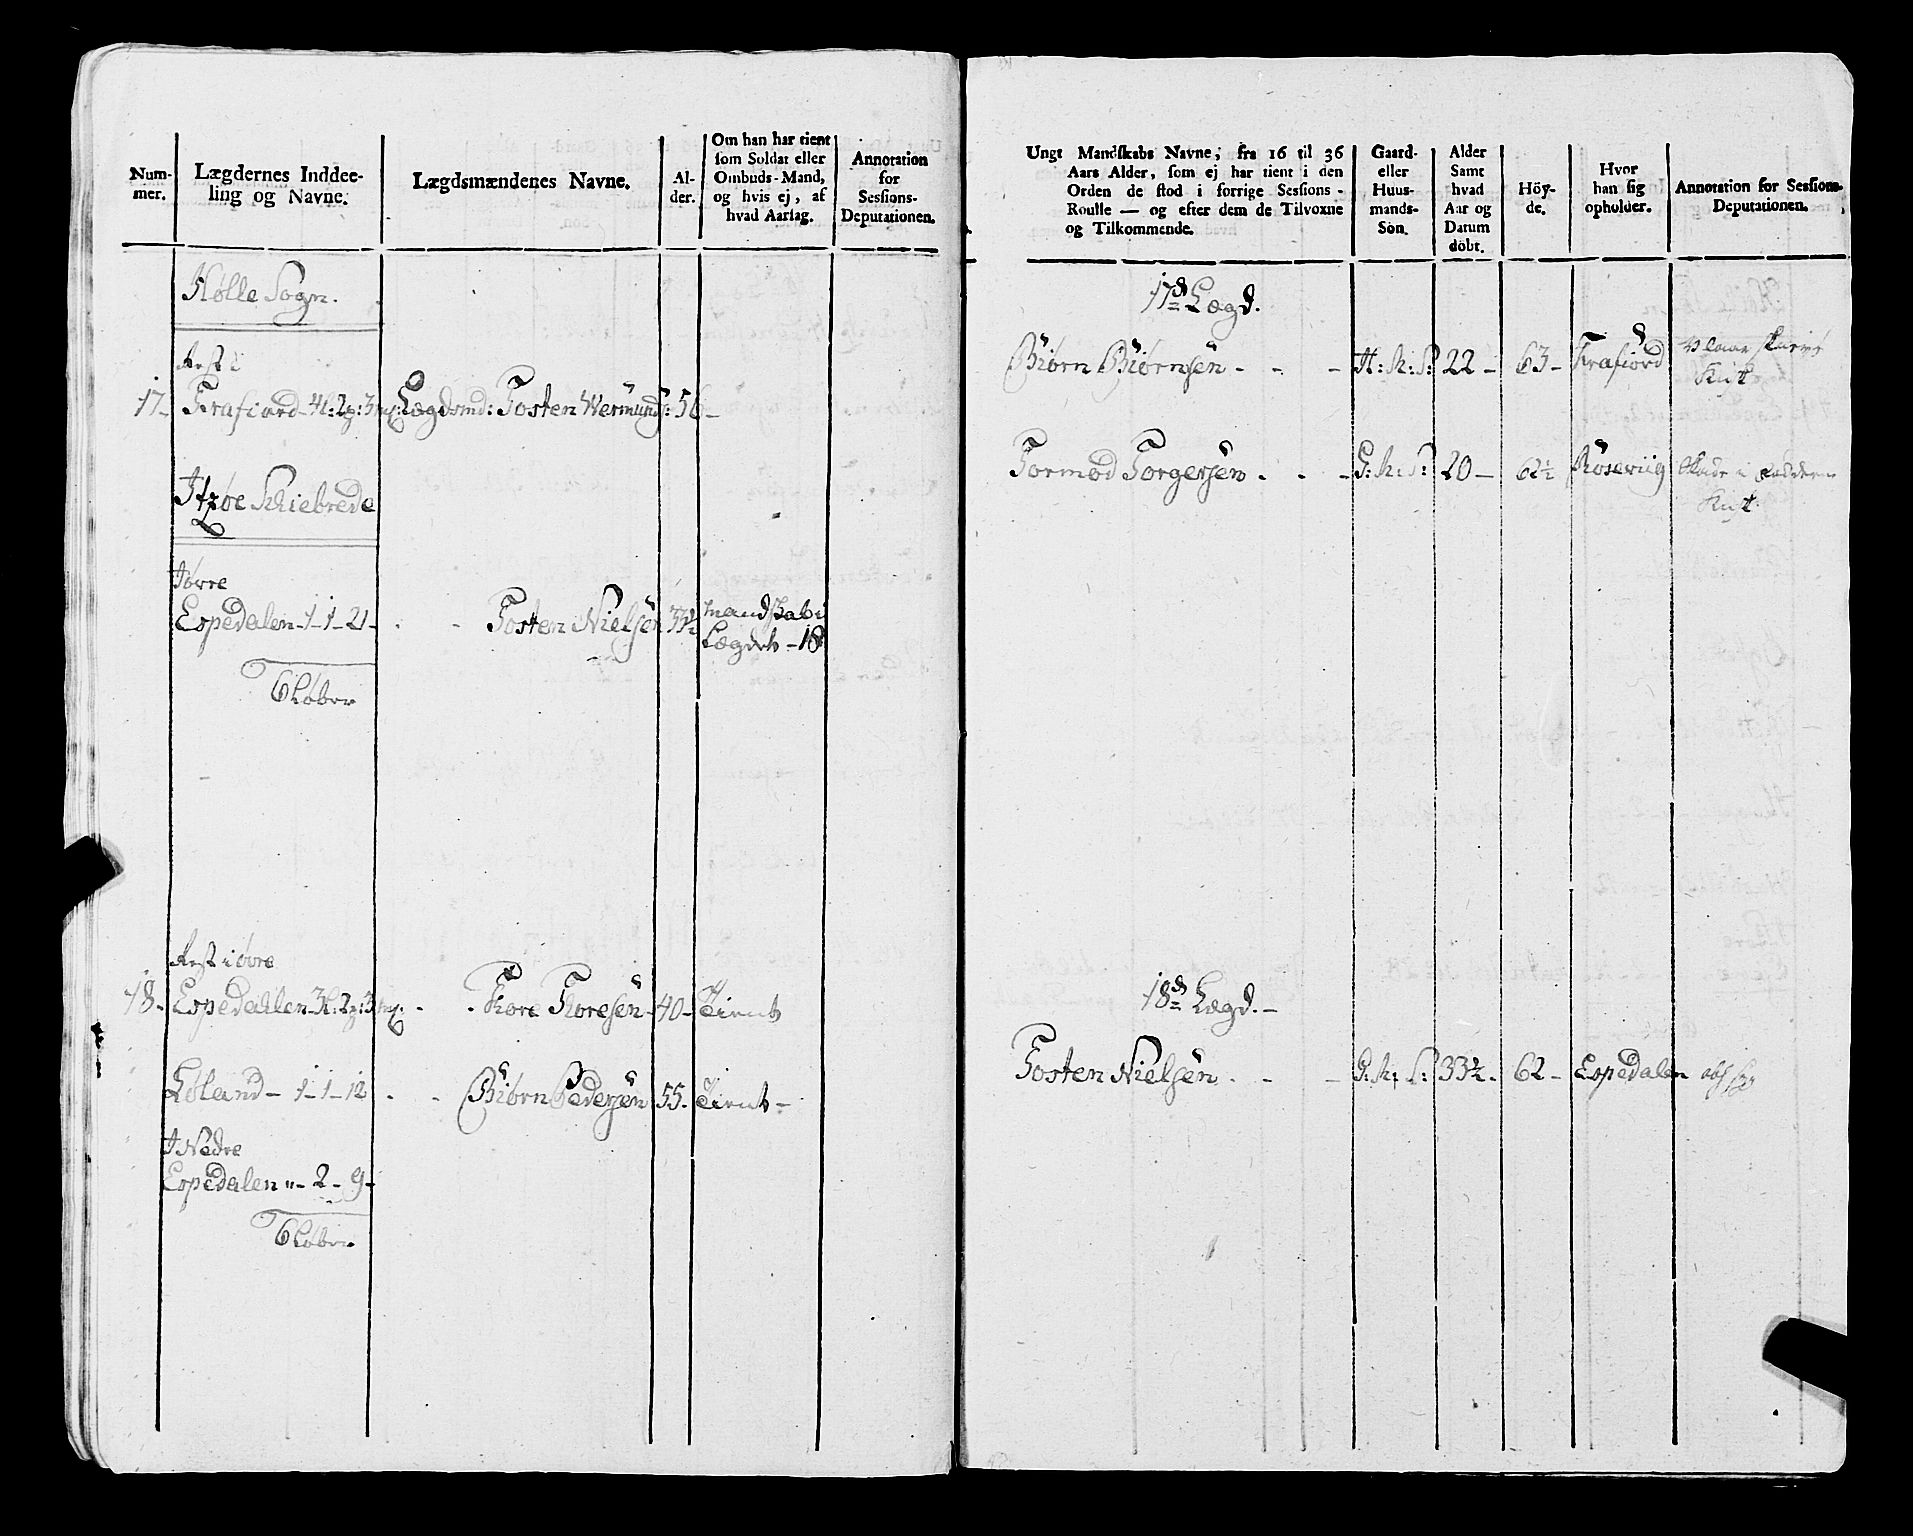 Num-
mer.
Lægdernes Inddee-
ling og Navne.
Lægdsmændenes Navne.
Al-
der.
Om han har tient
som Soldat eller
Ombuds-Mand,
og hvis ej, af
hvad Aarsag.
Annotation
for
Sessions-
Deputationen.
Hølle Sogn.
Rest i
17- Frafiord-4l:2p:3mk: Lægdsmd: Tosten Wermunds: 56-
Schiebrede
I øvre
Espedalen-1-1-21- - - Tosten Nielsen 33½ mandskab i
Lægdet -18
6 Løber
Rest i øvre
18- Espedahlen-3l:2p:3mk: - - Thore Thoresen-40- Tient
Løland-1-1-12 - - Biørn Pedersen 55- Tient-
I Nedre
Espedalen "-2-9-
6 Løber
Ungt Mandskabs Navne, fra 16 til 36
Aars Alder, som ej har tient i den
Orden de stod i forrige Sessions-
Roulle — og efter dem de Tilvoxne
og Tilkommende.
Gaard-
eller
Huus-
mands-
Søn.
Alder
Samt
hvad
Aar og
Datum
döbt.
Höy-
de.
Hvor
han sig
opholder.
Annotation for Sessions-
Deputationen.
17de Lægd.
Biørn Biørnsen - - - H:R:S: 22- 63- Frafiord
Tormod Torgersen - - - G:R:S: 20- 62½ Røseviig Skade i
18de Lægd.-
Tosten Nielsen - - - G:R:S: 33½- 62- Espedalen